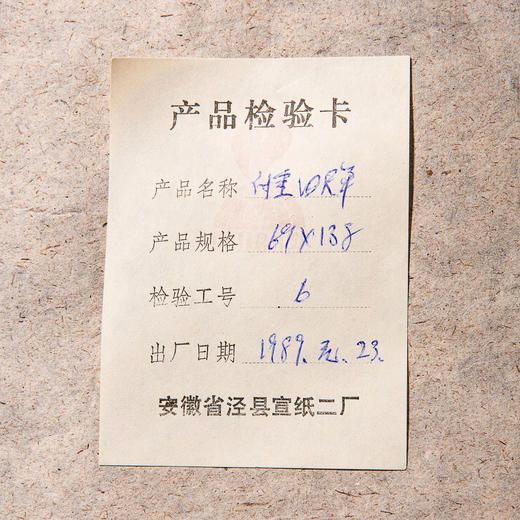 产品检验卡
产品名称 付重四尺单
产品规格 69×138
检验工号 6
出厂日期 1989.元.23.
安徽省泾县宣纸二厂